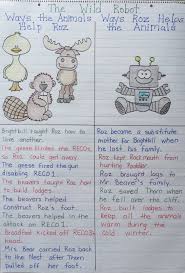 The Wild Robot
Ways the Animals
Help Roz
Ways Roz Helps
the Animals
Brightbill taught Roz how to
love another.
The geese blinded the RECOs
so Roz could get away.
The geese fired the gun
disabling RECO 1.
The beavers taught Roz how
to build lodges.
The beavers helped
construct Roz's foot.
The beavers helped in the
attack on RECO 1.
Broadfoot kicked off RECO 3
head.
Mrs. Bear carried Roz back
to the Nest after Thorn
pulled off her foot.
Roz became a substitute
mother for Brightbill when
he lost his family.
Roz kept Rockmouth from
hunting Paddler.
Roz brought logs to
Mr. Beaver's family.
Roz saved the deer from
dying.
Roz built lodges to
keep all the animals
warm during the
cold winter.